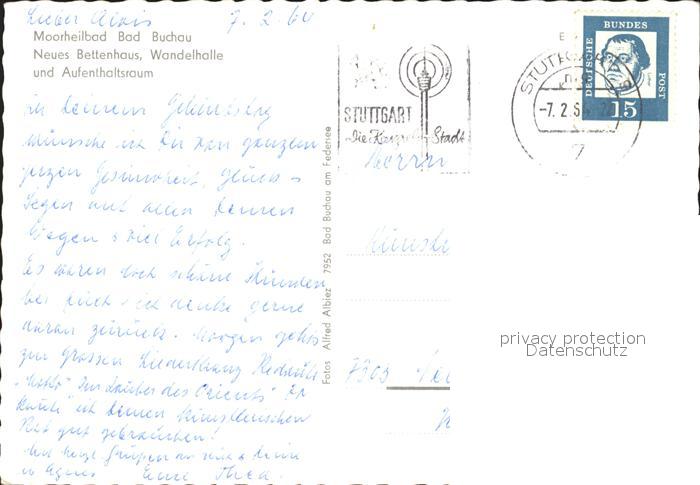 Lieber Alois 7. 2. 64
Moorheilbad Bad Buchau
Neues Bettenhaus, Wandelhalle
und Aufenthaltsraum
zu Deinem Geburtstag
wünsche ich Dir von ganzem
Herzen Gesundheit, Glück +
Segen auf allen Deinen
Wegen + viel Erfolg.
Es waren doch schöne Stunden
bei Euch + ich denke gerne
daran zurück. Morgen geht's
zur grossen Liederkranz Redoute
Motto "Im Zauber des Orients" Da
könnte ich Deinen künstlerischen
Rat gut gebrauchen!
Mit herzl. Grüßen an
Agnes Eure Thea.
Fotos Alfred Albiez 7952 Bad Buchau am Federsee
STUTTGART
Die Stadt
DEUTSCHE BUNDES POST
15
STUTTGART
-7. 2. 6
7
Herrn
privacy protection
Datenschutz